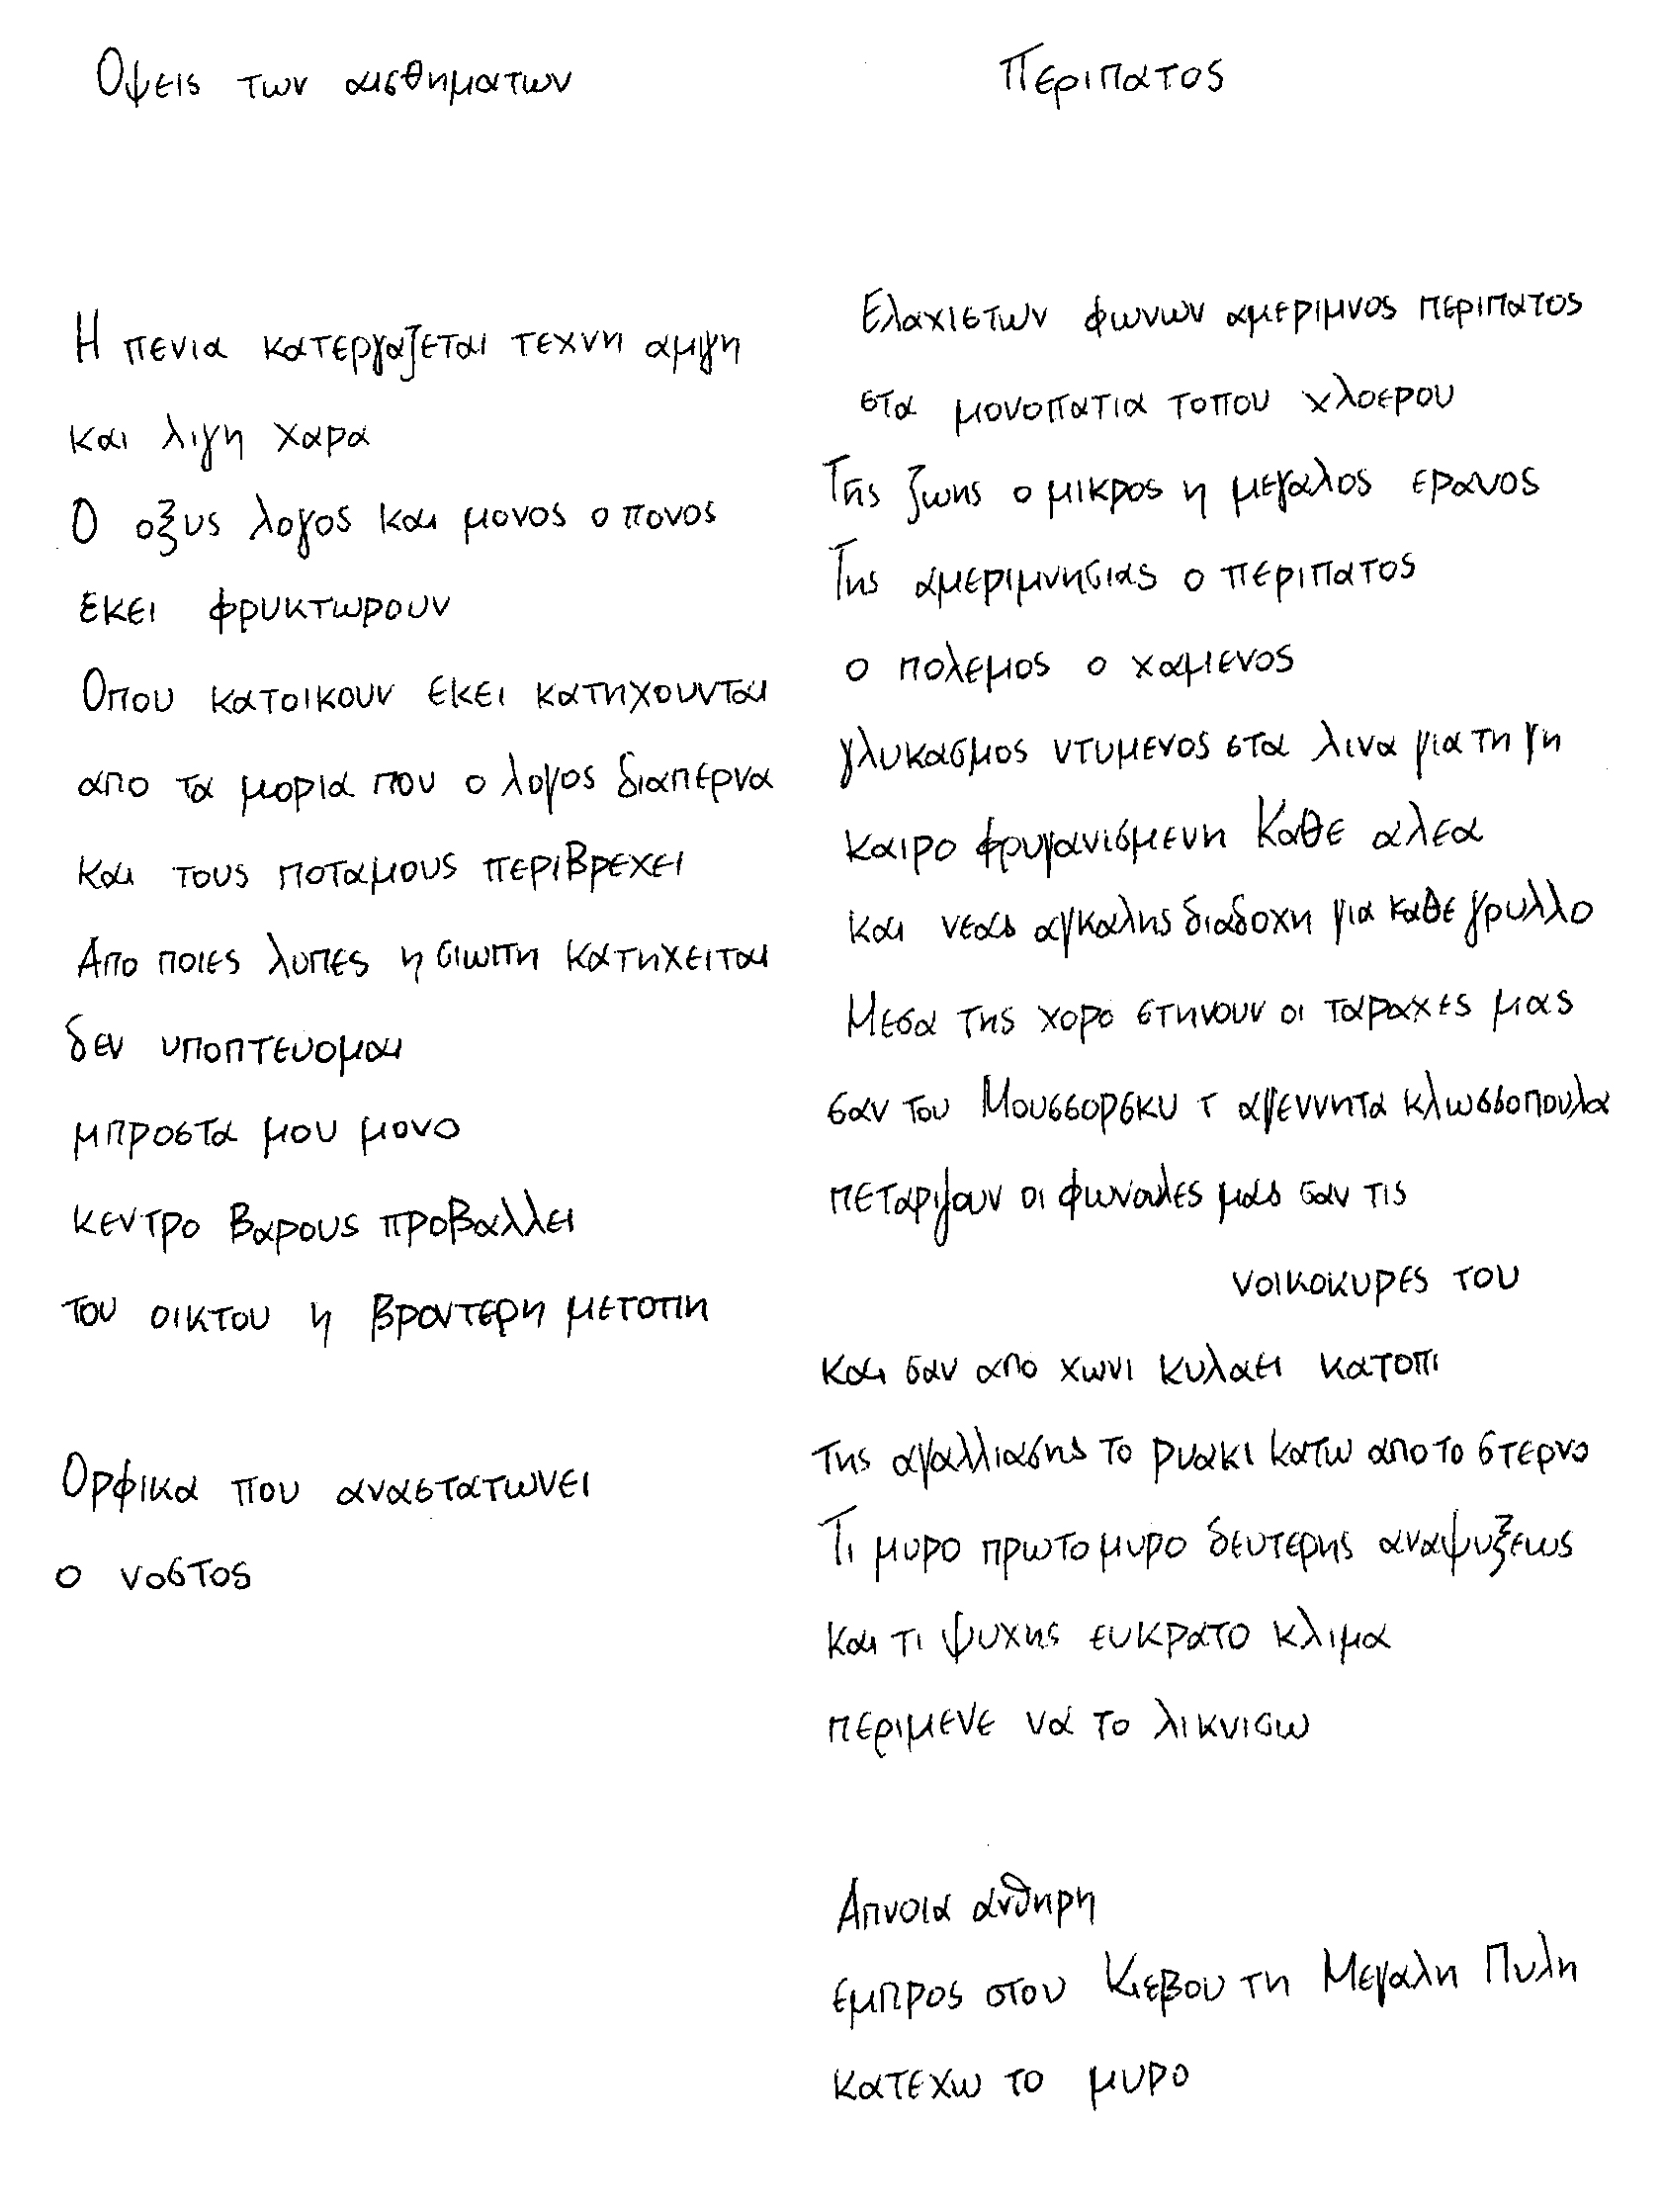 Οψεις των αισθηματων
Η πενια κατεργαζεται τεχνη αμιγη
και λιγη χαρα
Ο οξυς λογος και μονος ο πονος
εκει φρυκτωρουν
Οπου κατοικουν εκει κατηχουνται
απο τα μορια που ο λογος διαπερνα
και τους ποταμους περιβρεχει
Απο ποιες λυπες η σιωπη κατηχειται
δεν υποπτευομαι
μπροστα μου μονο
κεντρο βαρους προβαλλει
του οικτου η βροντερη μετοπη
Ορφικα που αναστατωνει
ο νοστος
Περιπατος
Ελαχιστων φωνων αμεριμνος περιπατος
στα μονοπατια τοπου χλοερου
Της ζωης ο μικρος η μεγαλος ερανος
Της αμεριμνησιας ο περιπατος
ο πολεμος ο χαμενος
γλυκασμος ντυμενος στα λινα για τη γη
καιρο φρυγανισμενη Καθε αλεα
και νεας αγκαλης διαδοχη για καθε γρυλλο
Μεσα της χορο στηνουν οι ταραχες μας
σαν του Μουσσορσκυ τ αγεννητα κλωσσοπουλα
πεταριζουν οι φωνουλες μας σαν τις
νοικοκυρες του
και σαν απο χωνι κυλαει κατοπι
της αγαλλιασης το ρυακι κατω απο το στερνο
Τι μυρο πρωτο μυρο δευτερης αναψυξεως
και τι ψυχης ευκρατο κλιμα
περιμενε να το λικνισω
Απνοια ανθηρη
εμπρος στου Κιεβου τη Μεγαλη Πυλη
κατεχω το μυρο